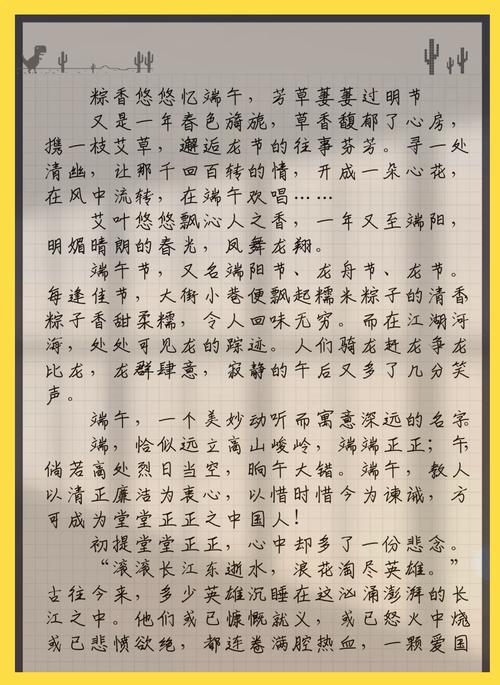 粽香悠悠忆端午，芳草萋萋过明节
又是一年春色旖旎，草香馥郁了心房，
携一枝艾草，邂逅龙节的往事芬芳。寻一处
清幽，让那千回百转的情，开成一朵心花，
在风中流转，在端午欢唱……
艾叶悠悠飘沁人之香，一年又至端阳，
明媚晴朗的春光，凤舞龙翔。
端午节，又名端阳节、龙舟节、龙节。
每逢佳节，大街小巷便飘起糯米粽子的清香
粽子香甜柔糯，令人回味无穷。而在江湖河
海，处处可见龙的踪迹。人们骑龙赶龙争龙
比龙，龙群肆意，寂静的午后又多了几分笑
声。
端午，一个美妙动听而寓意深远的名字
端，恰似远立高山峻岭，端端正正；午
倘若高处烈日当空，晌午大错。端午，教人
以清正廉洁为衷心，以惜时惜今为谏诫，方
可成为堂堂正正之中国人！
初提堂堂正正，心中却多了一份悲念。
“滚滚长江东逝水，浪花淘尽英雄。”
古往今来，多少英雄沉睡在这汹涌澎湃的长
江之中。他们或已慷慨就义，或已怒火中烧
或已悲愤欲绝，都连卷满腔热血，一颗爱国